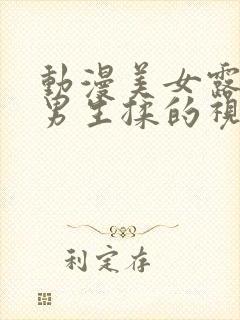 動漫美女露
男生揉的視
利定存